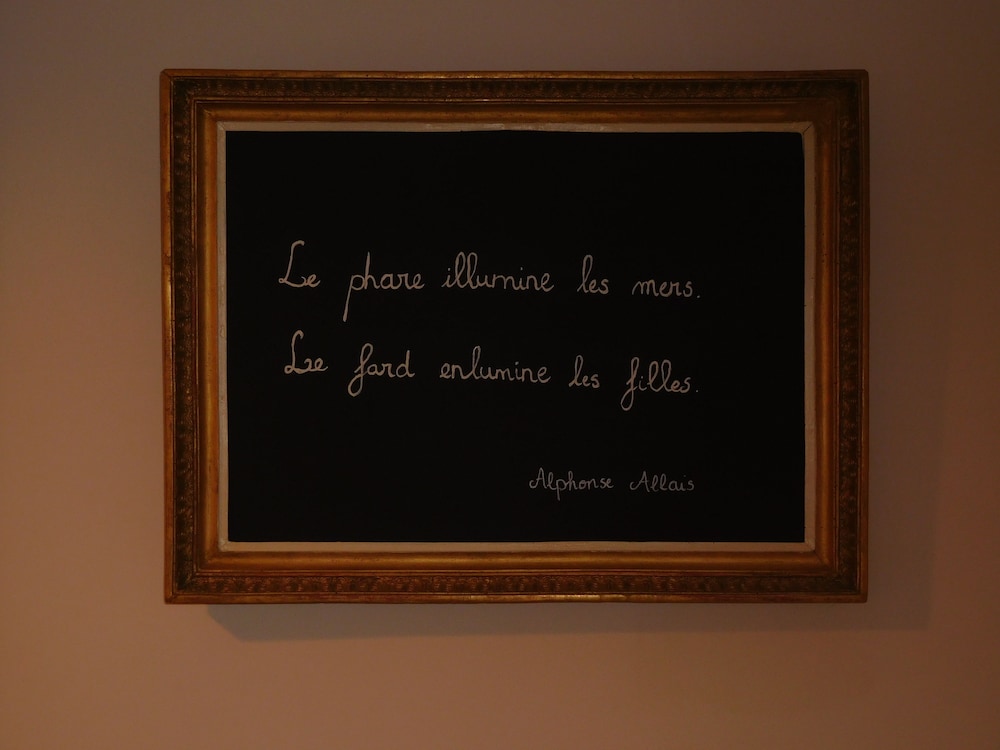 Le phare illumine les mers.
Le fard enlumine les filles.
Alphonse Allais